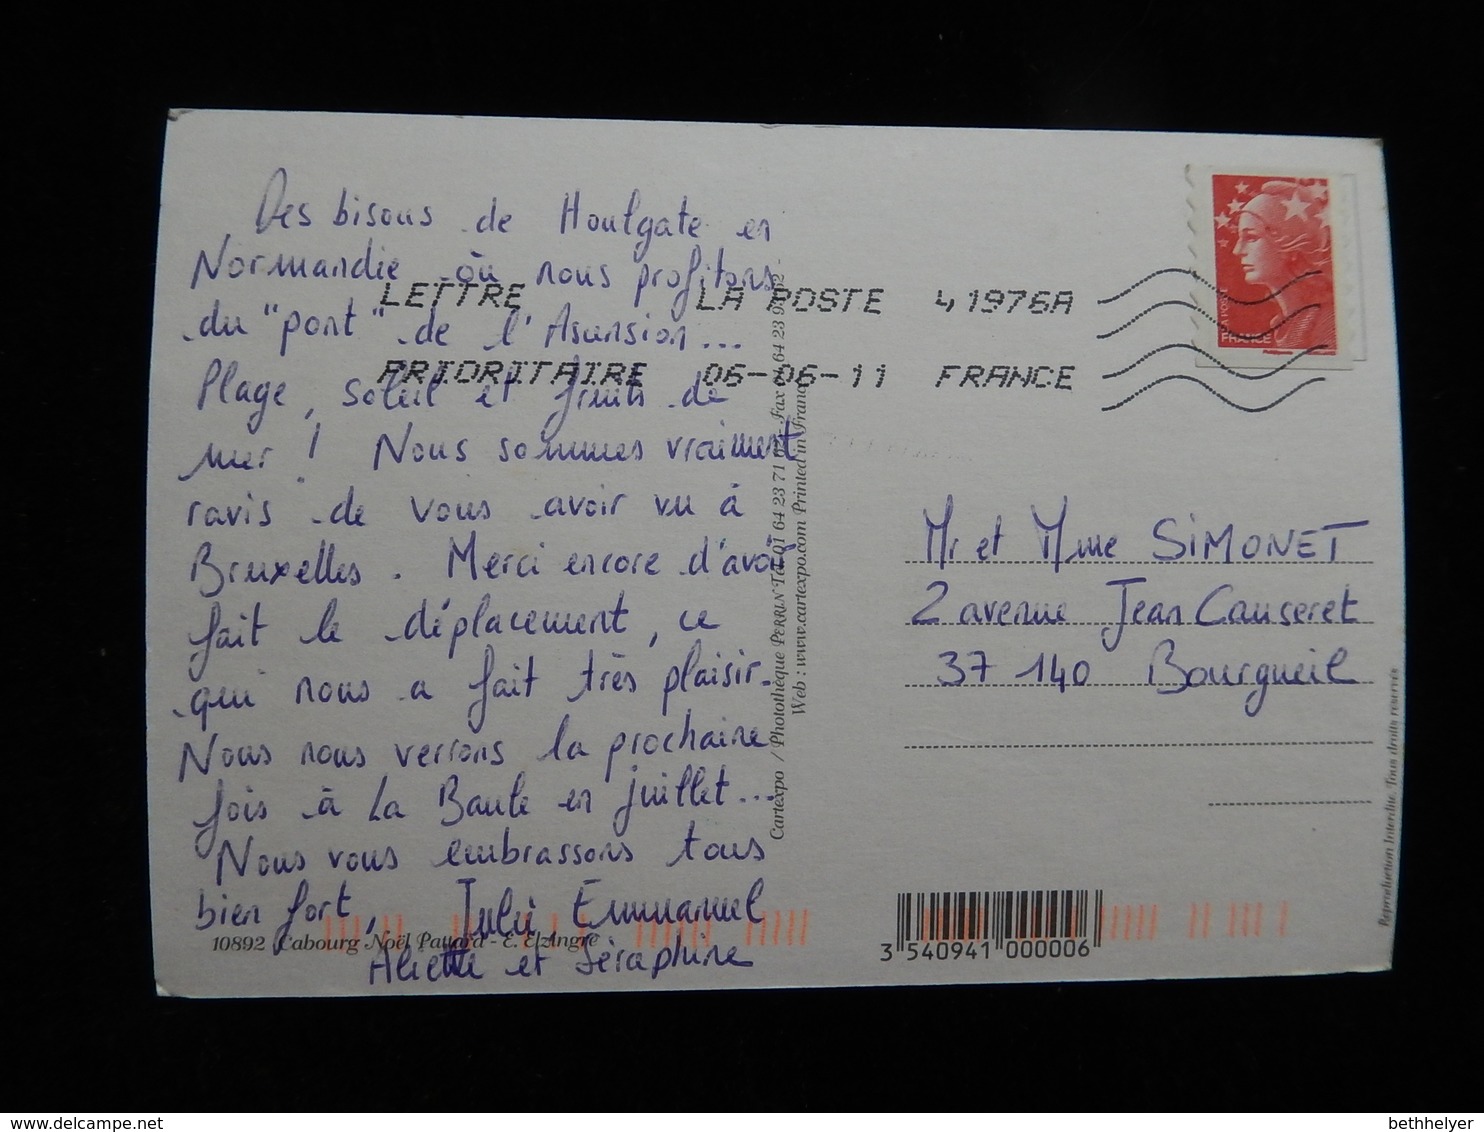 Des bisous de Houlgate en
Normandie où nous profitons
du "pont" de l'Asunsion...
Plage, soleil et fruits de
mer ! Nous sommes vraiment
ravis de vous avoir vu à
Bruxelles. Merci encore d'avoir
fait le déplacement, ce
qui nous a fait très plaisir.
Nous nous verrons la prochaine
fois à La Baule en juillet...
Nous vous embrassons tous
bien fort, Julie Emmanuel
Aliette et Séraphine
10892 Cabourg Noël Pauard - E. Elzingre
LETTRE LA POSTE 41976A
PRIORITAIRE 06-06-11 FRANCE
LA POSTE
FRANCE
Cartexpo / Photothèque PERRIN Tél 01 64 23 71 Fax 64 23 9
Web : www.cartexpo.com Printed in France
Mr et Mme SIMONET
2 avenue Jean Causeret
37 140 Bourgueil
3 540941 000006
Reproduction Interdite. Tous droits réservés
bethhelyer